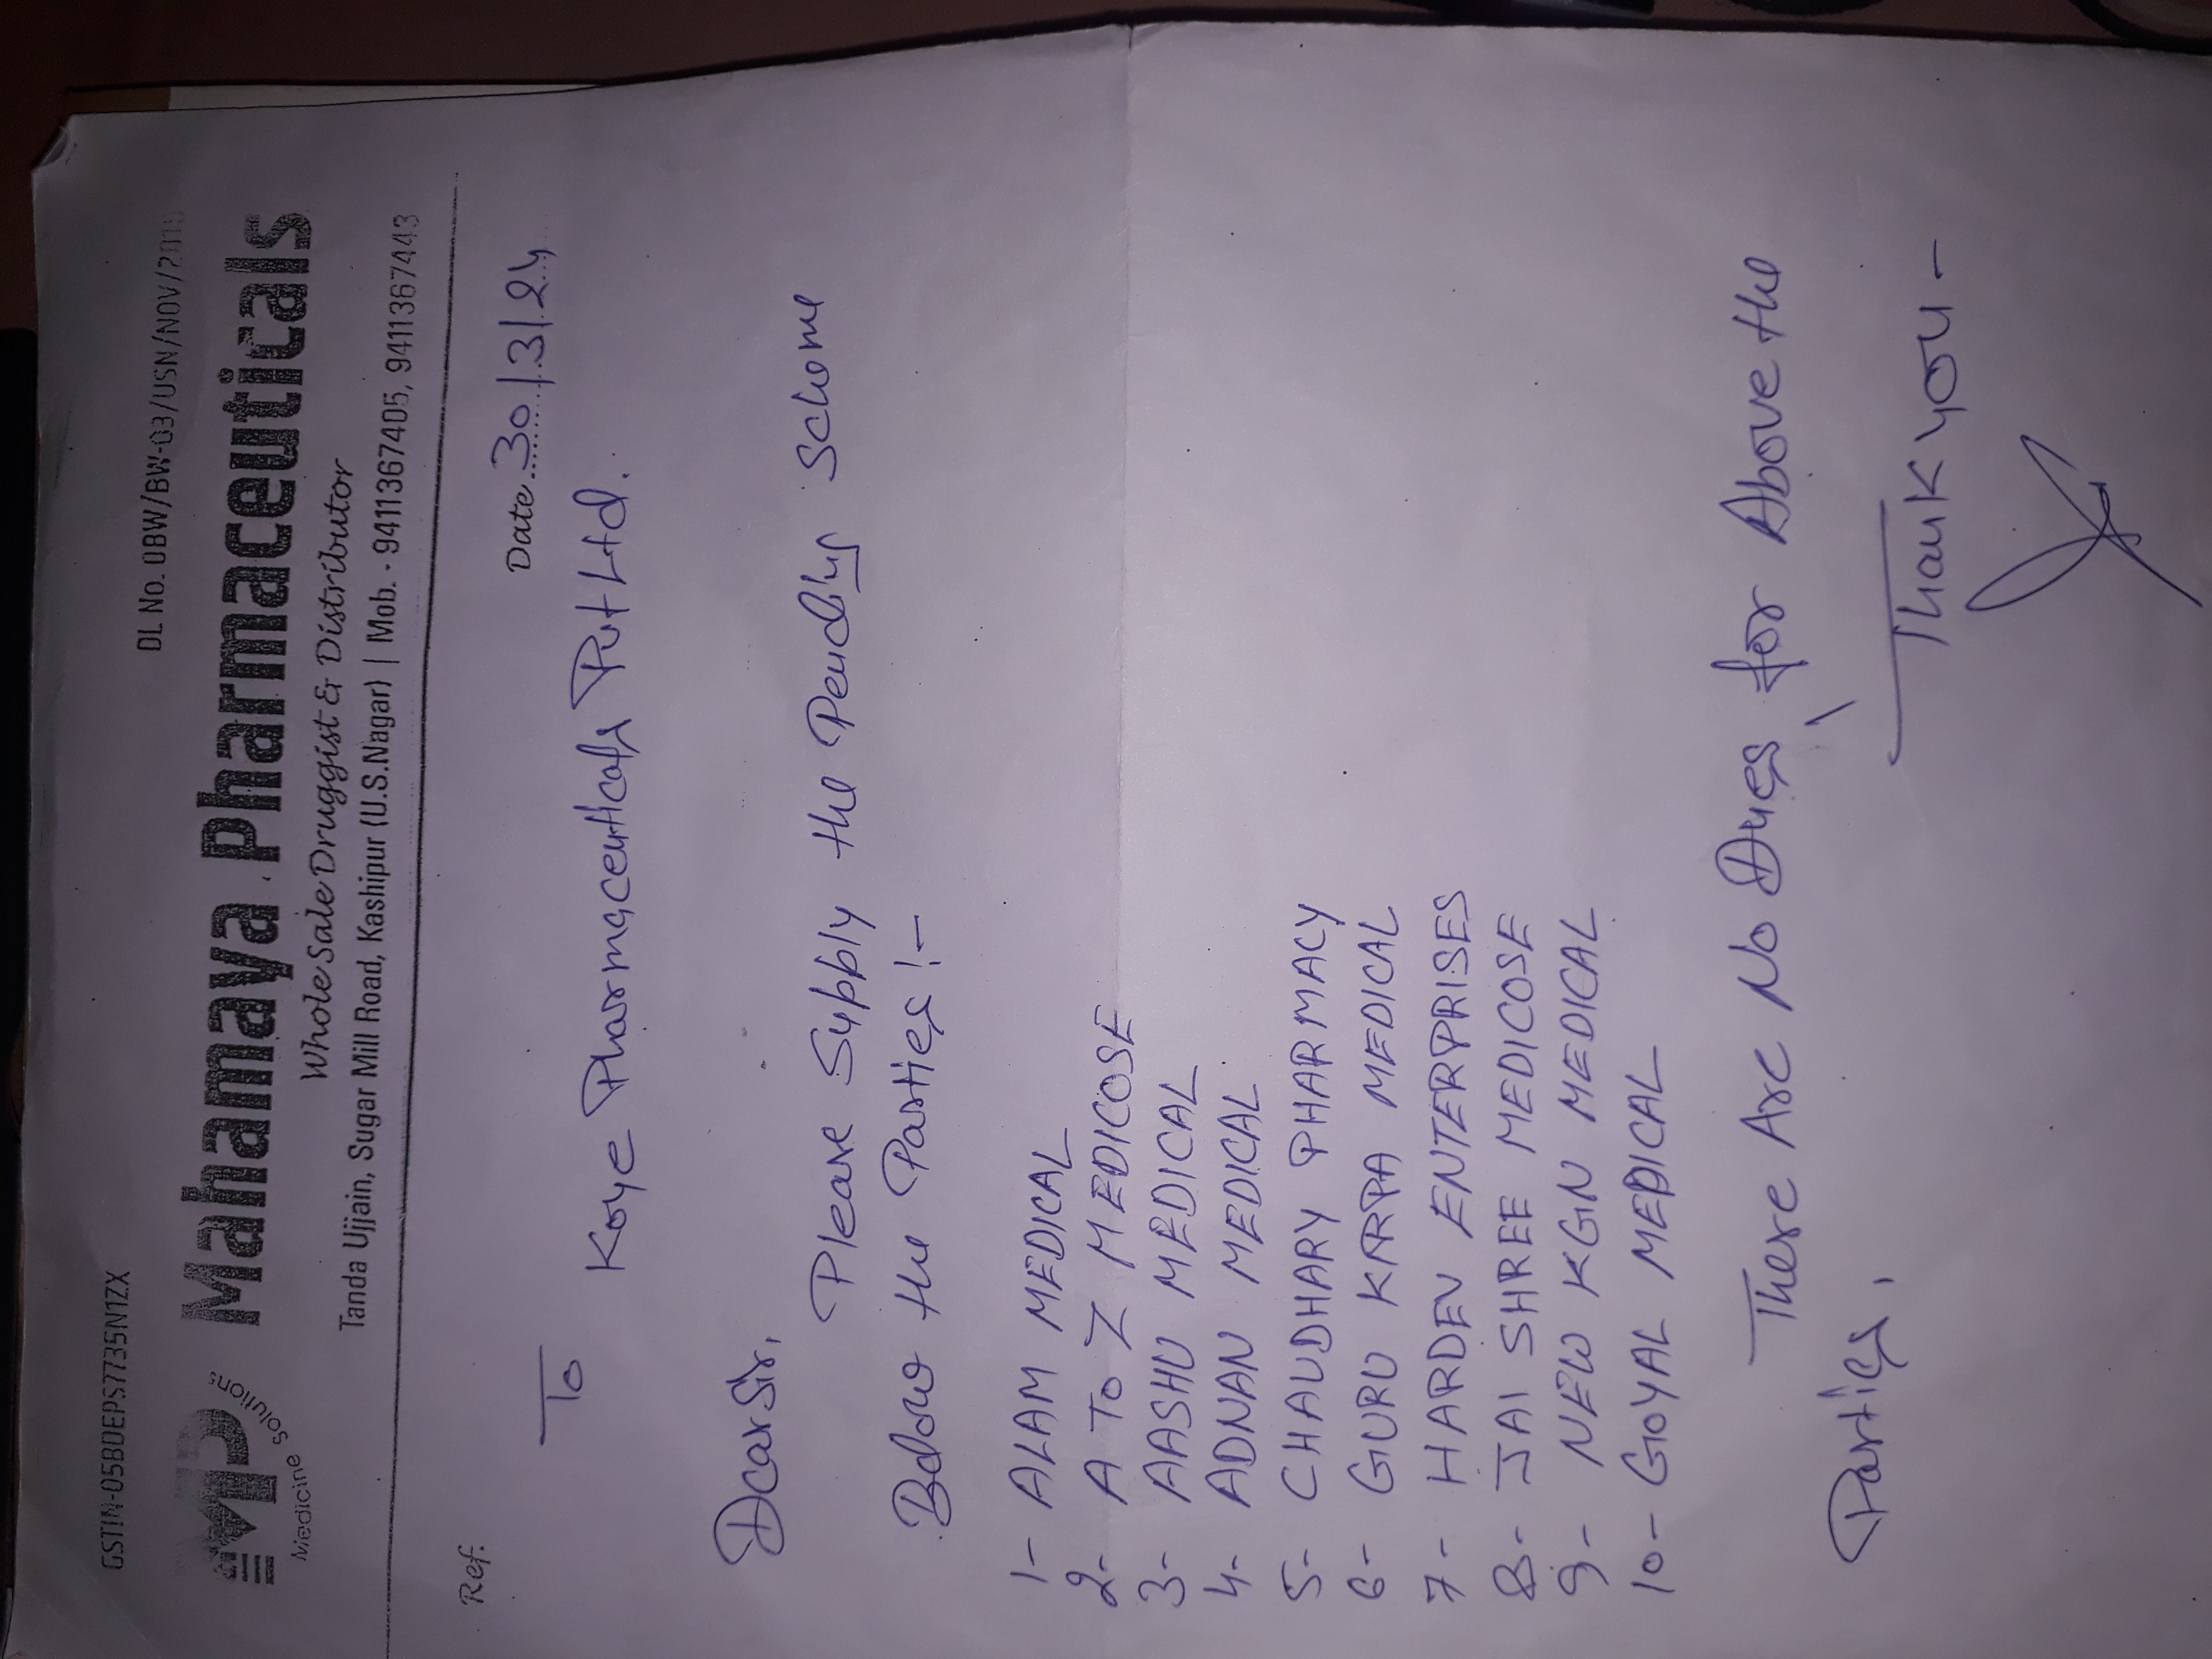 GSTIN-05BDEPS7735N1ZX
DL No. OBW/BW-03/USN/NOV/2018
MP
Medicine Solutions
Mahamaya Pharmaceuticals
Whole Sale Druggist & Distributor
Tanda Ujjain, Sugar Mill Road, Kashipur (U.S.Nagar) | Mob. - 9411367405, 9411367443
Ref.
Date 30/3/24
To
Koye Pharmaceuticals Pvt Ltd.
Dear Sir,
Please Supply the Pending Scheme
Below the Parties :-
1- ALAM MEDICAL
2- A TO Z MEDICOSE
3- AASHU MEDICAL
4- ADNAN MEDICAL
5- CHAUDHARY PHARMACY
6- GURU KARPA MEDICAL
7- HARDEV ENTERPRISES
8- JAI SHREE MEDICOSE
9- NEW KGN MEDICAL
10- GOYAL MEDICAL
There Are No Dues, for Above the
Parties,
Thank you -